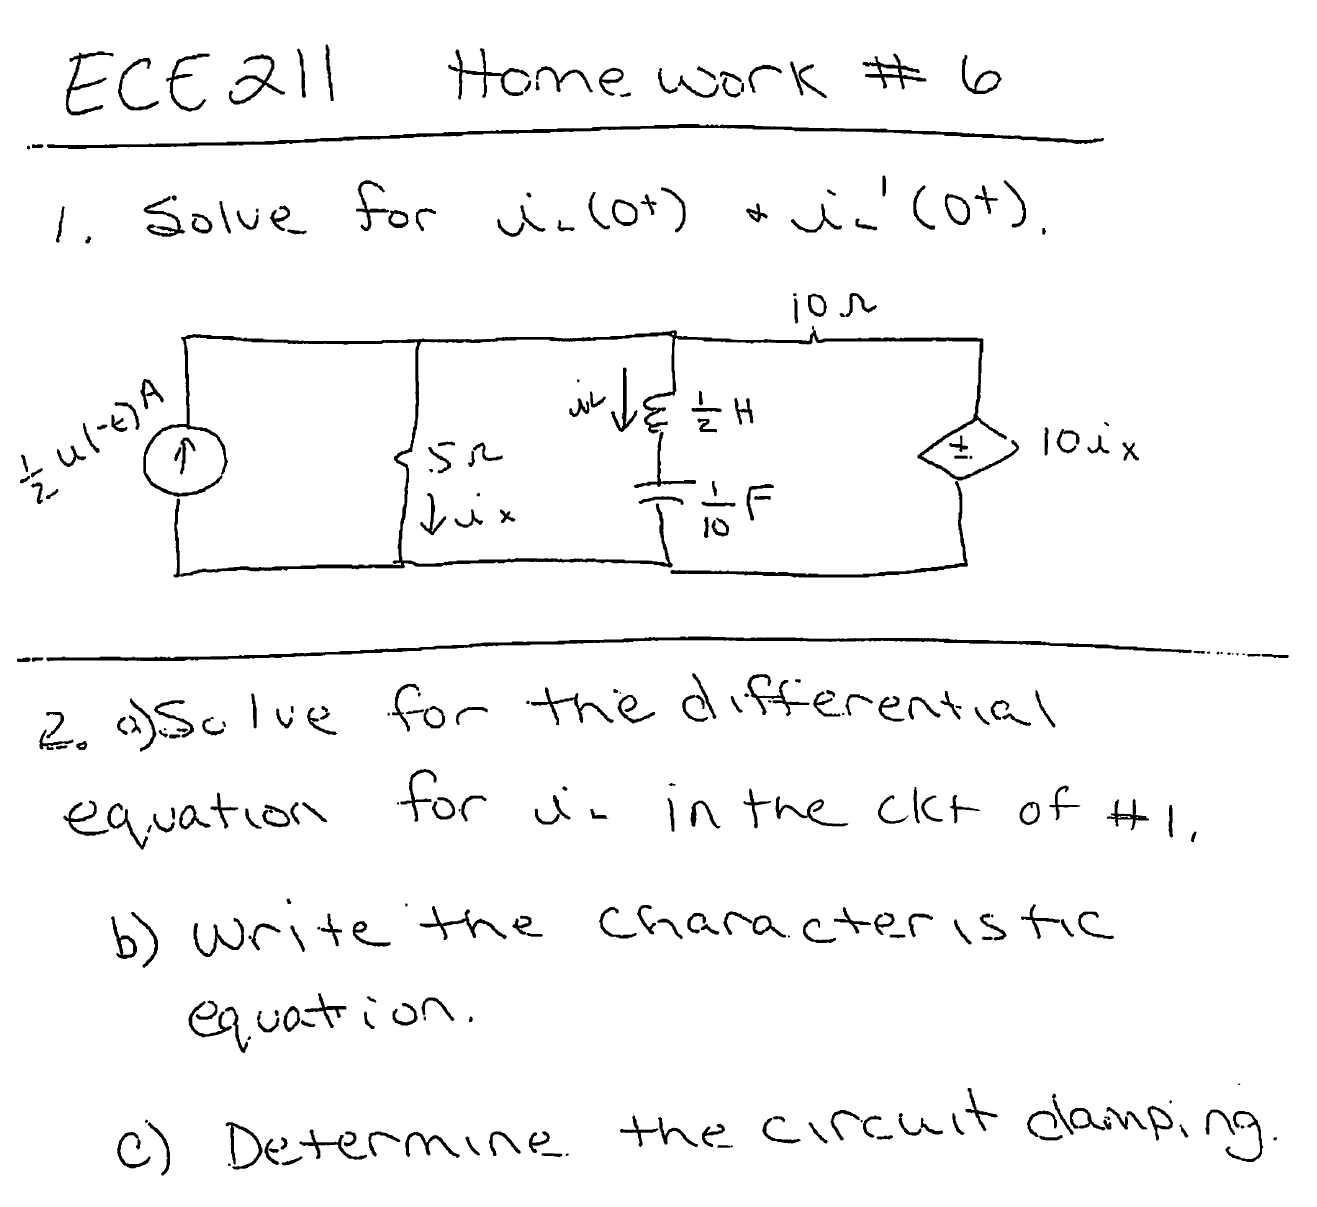 ECE 211 Homework # 6
1. Solve for iL(0+) & iL'(0+).
10 Ω
1/2 u(-t) A
iL ↓ 1/2 H
5 Ω
↓ ix
1/10 F
±
10ix
2. a) Solve for the differential
equation for iL in the ckt of #1.
b) Write the characteristic
equation.
c) Determine the circuit damping.